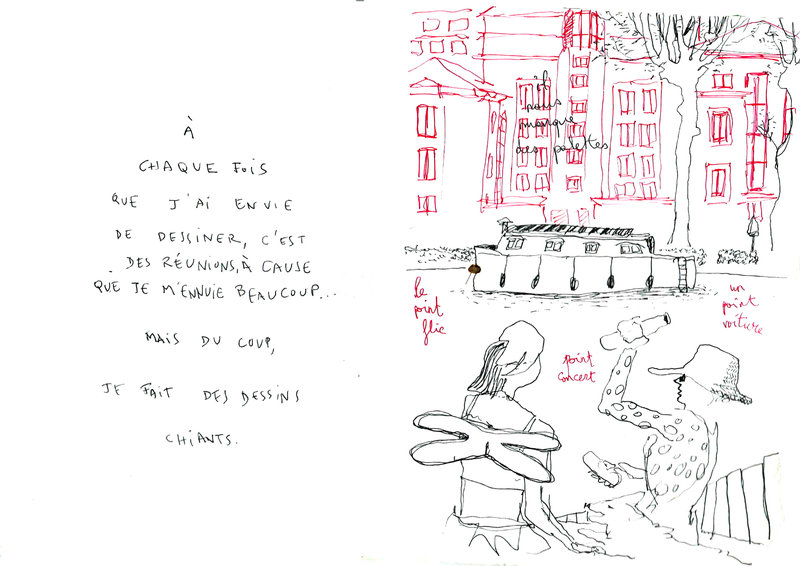 À
CHAQUE FOIS
QUE J'AI ENVIE
DE DESSINER, C'EST
DES RÉUNIONS, À CAUSE
QUE JE M'ENNUIE BEAUCOUP...
MAIS DU COUP,
JE FAIT DES DESSINS
CHIANTS.
il
nous
manque
des palettes
le
point
flic
un
point
voiture
point
concert